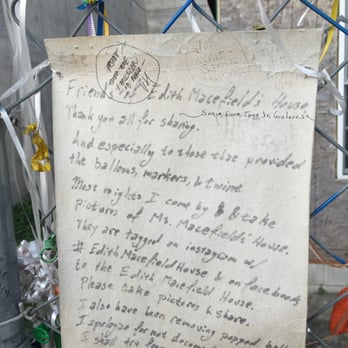 Friends of Edith Macefield's House,
Thank you all for sharing.
And especially to those that provided
the balloons, markers, & twine.
Most nights I come by & take
pictures of Ms. Macefields' House.
They are tagged on instagram w/
# Edith Macefield House & on facebook
to the Edith Macefield House.
Please take pictures & share.
I also have been removing popped
I apologize for not
I shall try